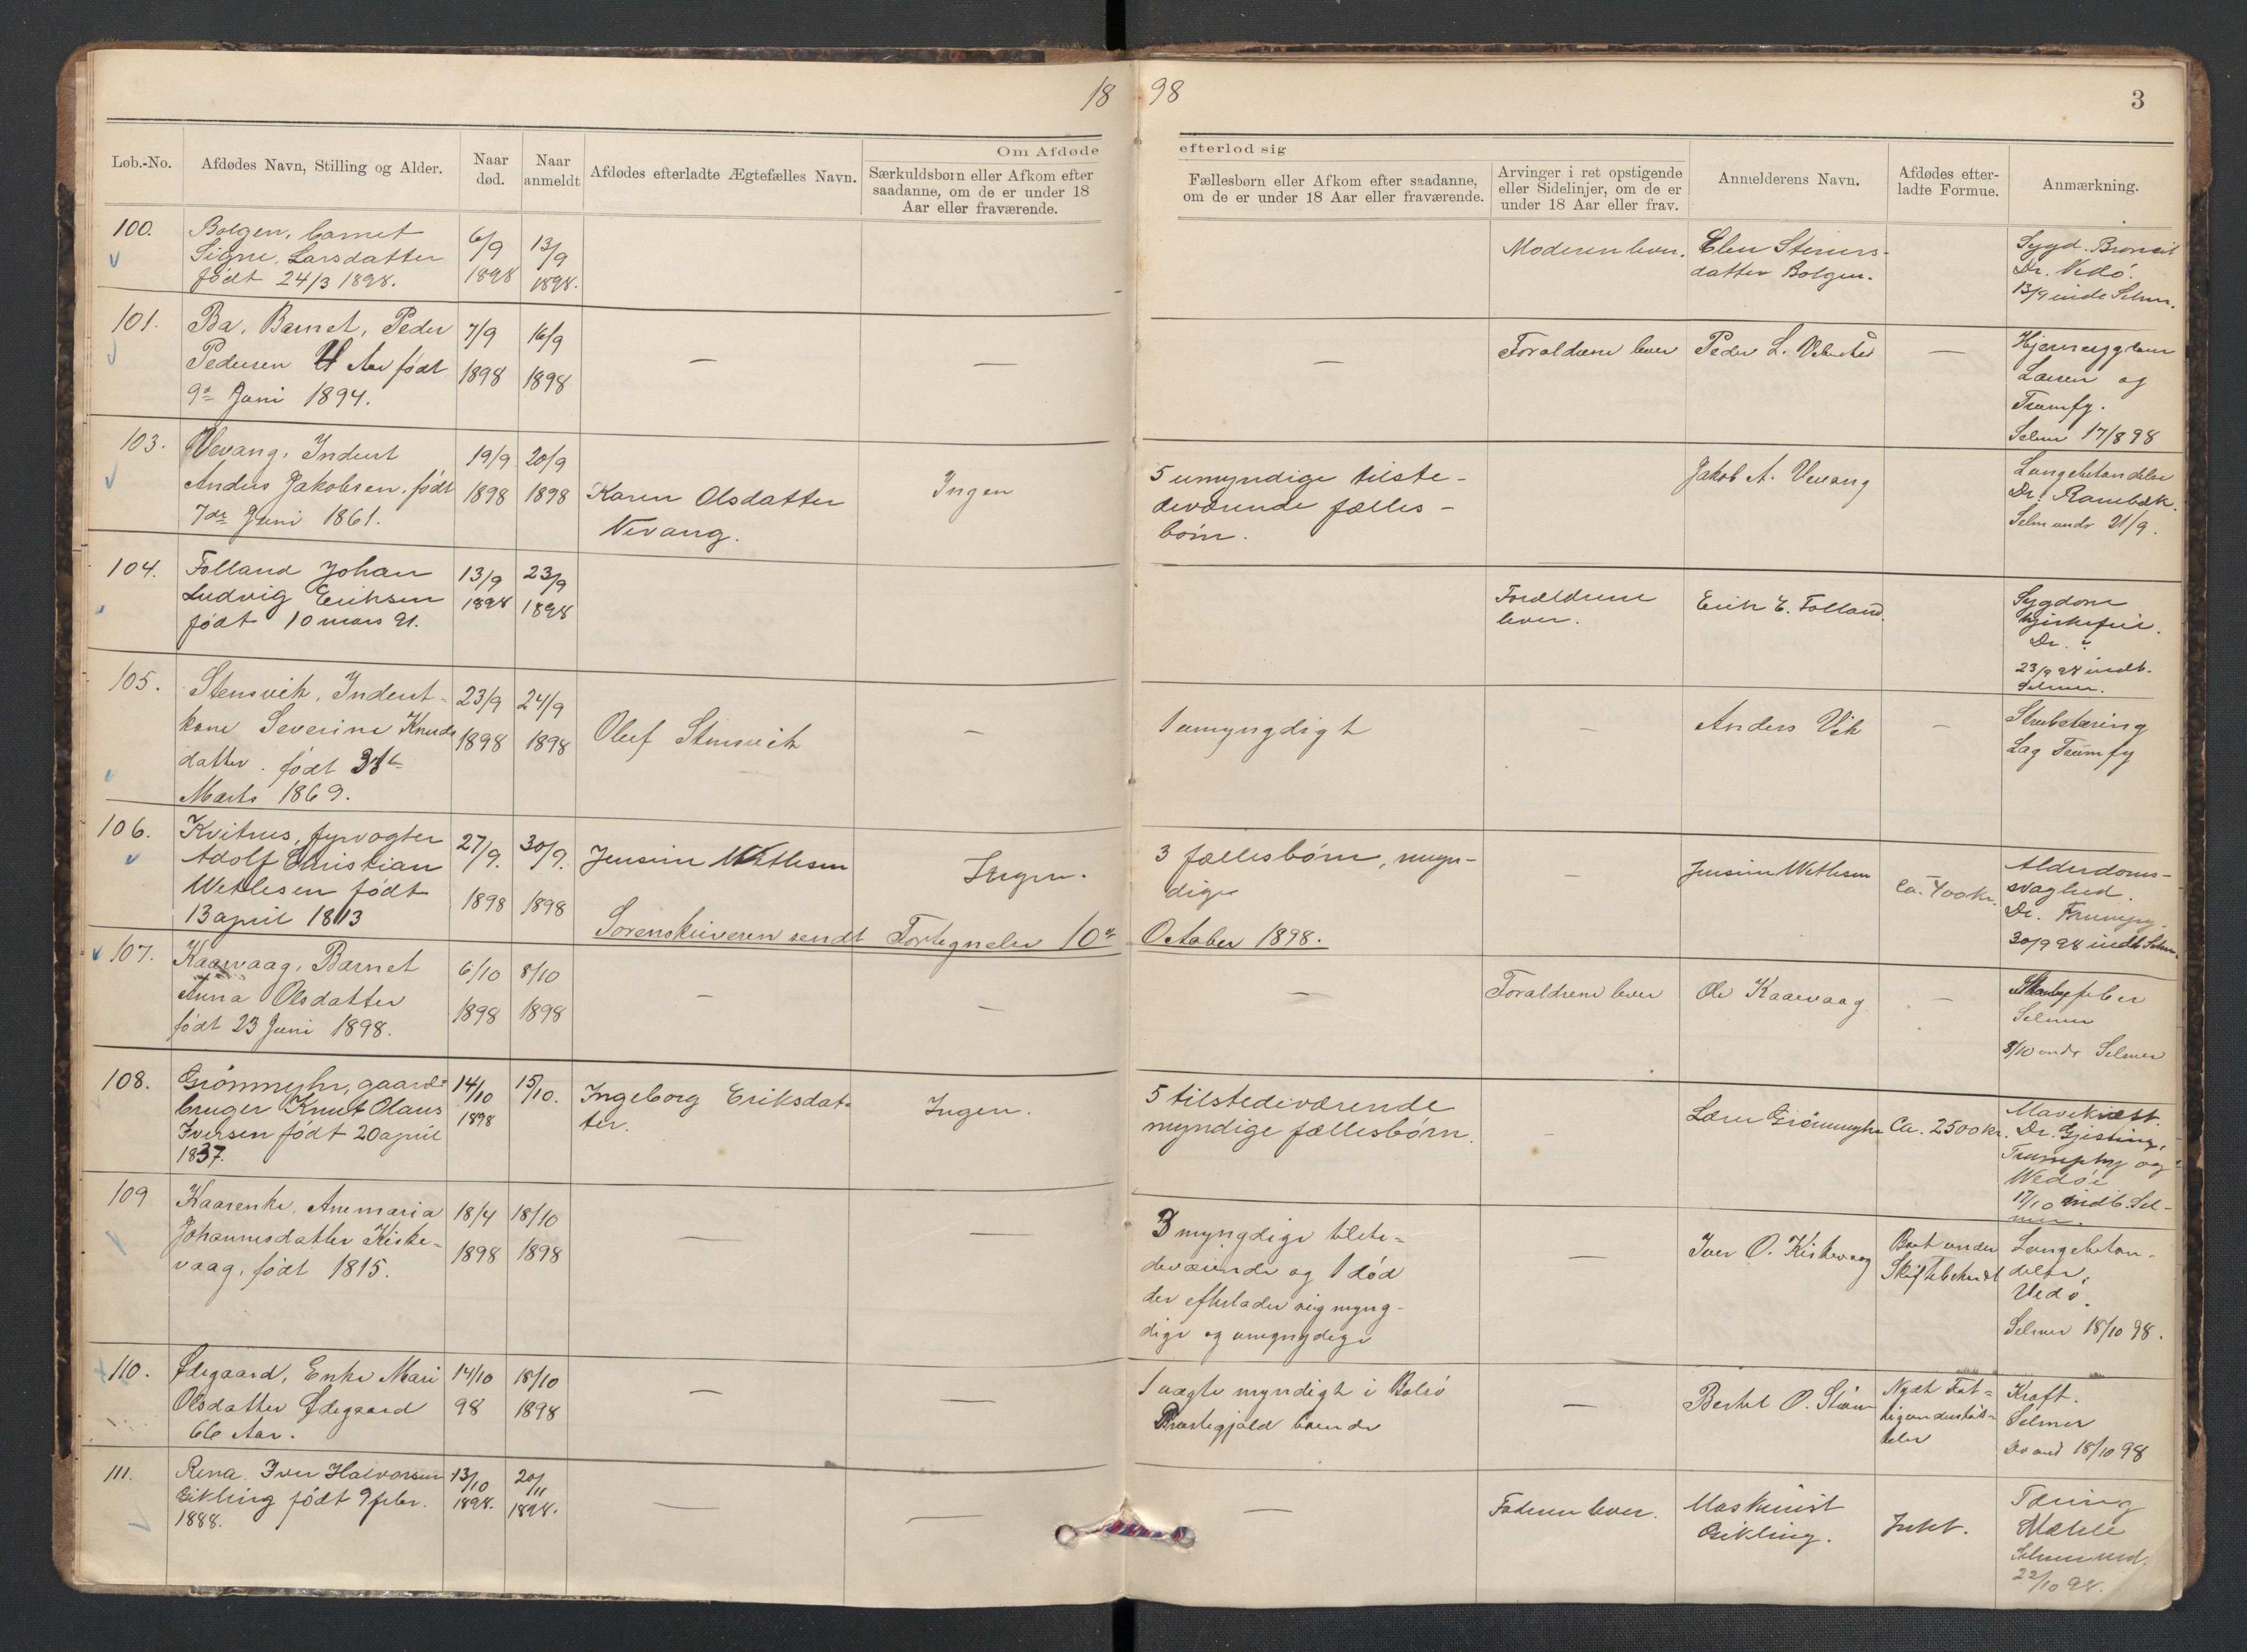 18 98
3
Løb.-No.
Afdødes Navn, Stilling og Alder.
Naar
død.
Naar
anmeldt
Afdødes efterladte Ægtefælles Navn.
Om Afdøde
efterlod sig
Særkuldsbørn eller Afkom efter
saadanne, om de er under 18
Aar eller fraværende.
Fællesbørn eller Afkom efter saadanne,
om de er under 18 Aar eller fraværende.
Arvinger i ret opstigende
eller Sidelinjer, om de er
under 18 Aar eller frav.
Anmelderens Navn.
Afdødes efter-
ladte Formue.
Anmærkning.
100.
Bolgen, barnet
Signe Larsdatter
født 24/3 1898.
6/9
1898
13/9
1898.
Moderen lever.
Elen Steners-
datter Bolgen.
Sygd.
Dr. Vedø.
13/9 inde Selmer.
101.
Bø, Barnet, Peder
Pedersen 4 Aar født
9de Juni 1894.
7/9
1898
16/9
1898
—
—
—
Forældrene lever
Peder L.
—
Larsen og
Trumfy.
Selmer 17/8 98
103.
Vevang, Inderst
Anders Jakobsen, født
7de Juni 1861.
19/9
1898
20/9
1898
Karen Olsdatter
Vevang.
Ingen
5 umyndige tilste-
deværende fælles-
børn.
Jakob A. Vevang
Lungebetændelse
Dr. Rambæk.
Selm undr 21/9.
104.
Folland Johan
Ludvig Eriksen
født 10 mars 91.
13/9
1898
23/9
1898
Forældrene
lever.
Erik E. Folland.
Sygdom
Dr. ?
23/9 98 indb.
Selmer.
105.
Stensvik, Inderst-
kone Severine Knuds
datter. født
Marts 1869.
23/9
1898
24/9
1898
Oluf Stensvik
—
1 umyngdigt
—
Anders Vik
—
Strubetæring
Lag Trumfy
106.
Kvitnes, fyrvogter
Adolf Christian
Wethesen født
13 april 1813
27/9.
1898
30/9.
1898
Jensine Wethesen
Ingen.
3 fællesbørn, myn-
dige
—
Jensine Wethesen
Ca. 400 kr.
Alderdoms-
svaghed.
Dr. Trumpy.
30/9 98 indb Selm.
Sorenskriveren sendt Fortegnelse 10de
October 1898.
107.
Kaarvaag, Barnet
Anna Olsdatter
født 23 Juni 1898.
6/10
1898
8/10
1898
—
—
—
Forældrene lever
Ole Kaarvaag
—
feber
Selmer
8/10 undr Selmer
108.
Grønmyhr, gaard-
bruger Knut Olaus
Iversen født 20 april
1837.
14/10
1898
15/10.
Ingeborg Eriksdat-
ter.
Ingen.
5 tilstedeværende
myndige fællesbørn.
—
Lars Grønmyhr
Ca. 2500 kr.
Mavekræft.
Dr. Gjestring,
Trumphy og
Wedøe
17/10 indb. Sel-
mer.
109
Kaarenke, Anemaria
Johannesdatter Kiske-
vaag, født 1815.
18/4
1898
18/10
1898
—
—
3 myngdige tilste-
deværende og 1 død
der efterlader sig myng-
dige og umyngdige
—
Iver O. Kiskevaag
Boet under
Skiftebehandl
Lungebetæn-
delse,
Vedø.
Selmer 18/10 98.
110.
Ødegaard, Enke Mari
Olsdatter Ødegaard
66 Aar.
14/10
98
18/10
1898
—
—
1 uægte myndigt i Bolsø
Præstegjæld boende
—
Berthel O.
Nydt Fat-
tigunderstøt-
telse
Kræft.
Selmer
Do und 18/10 98
111.
Rena. Iver Halvorsen
Gikling født 9 febr.
1888.
13/10
1898.
20/11
1898.
—
—
—
Faderen lever.
Maskinist
Gikling.
Intet.
Tæring
Selmer und.
22/10 98.